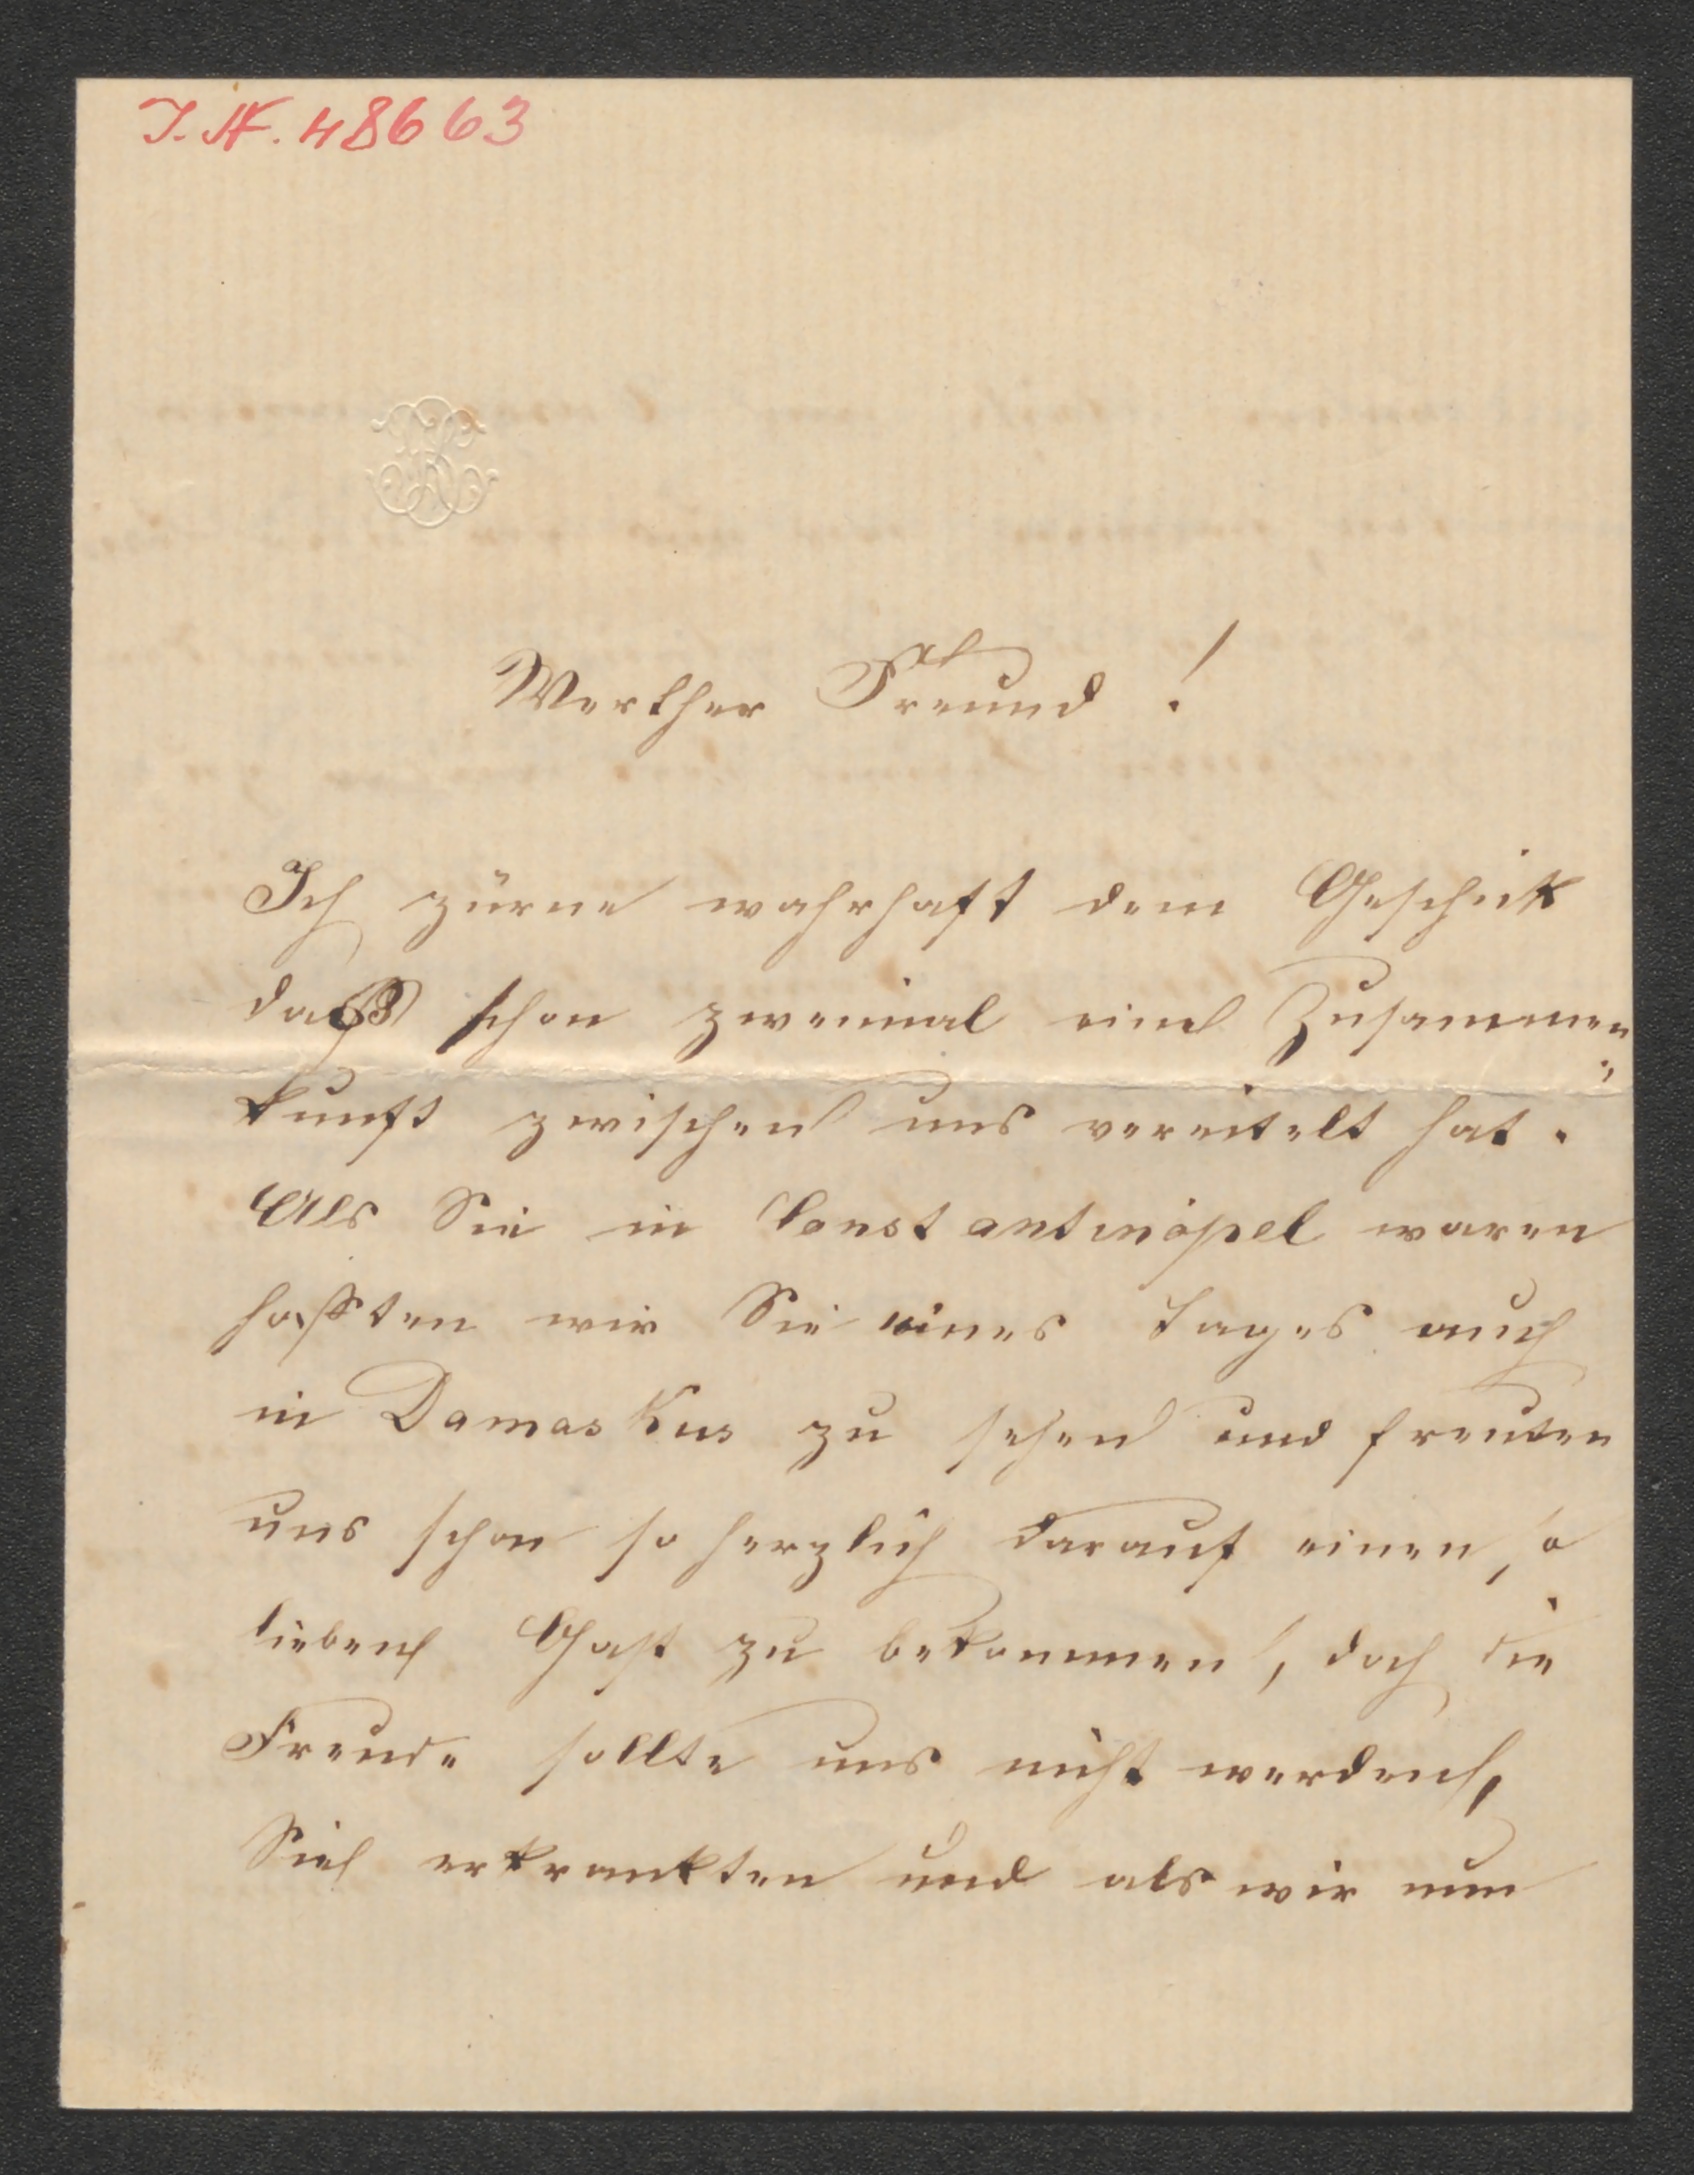 I. N. 48663
Werther Freund !
Ich zürne wahrhaft dem Geschick
daß schon zweimal eine Zusammen
kunft zwischen uns vereitelt hat.
Als Sie in Constantinopel waren
hofften wir Sie eines Tages auch
in Damaskus zu sehen und freuten
uns schon so herzlich darauf einen so
lieben Gast zu bekommen, doch die
Freude sollte uns nicht werden,
Sie erkrankten und als wir nun